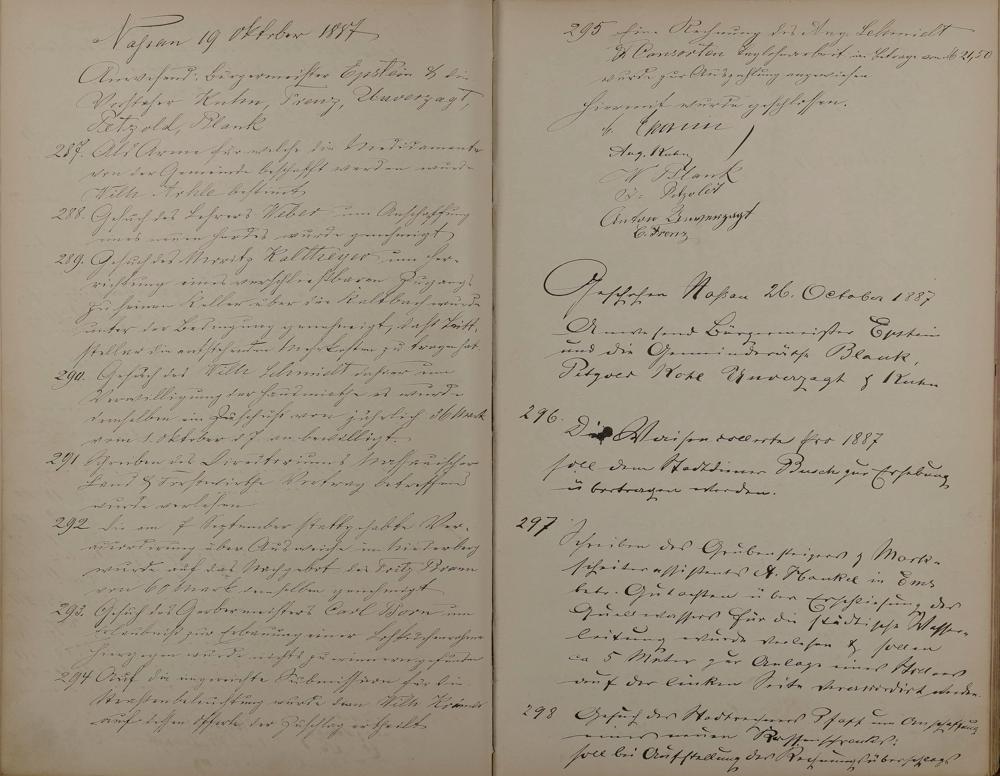 Nassau 19 Oktober 1887
Anwesend: Bürgermeister Epstein & die
Vorsteher Kuhn, Trenz, Unverzagt,
Petzold, Blank
287. Als Arme für welche die Medicamente
von der Gemeinde beschafft werden wurde
Wilh. bestimmt
288. Gesuch des Lehrers Weber um Anschaffung
eines neuen Herdes wurde genehmigt
289. Gesuch des Moritz Kaltheyer um Her-
richtung eines verschließbaren Zugangs
zu seinem Keller über die Kaltbach wurde
unter der Bedingung genehmigt, daß Bitt-
steller die entstehenden Mehrkosten zu tragen hat
290. Gesuch des Wilh Schmidt Lehrer um
Bewilligung der Hausmiethe es wurde
demselben ein Zuschuß von jährlich 36 Mark
vom 1. Oktober 87. an bewilligt.
291 Schreiben des Directoriums Nassauischer
Land & Forstwirthe Vertrag betreffend
wurde verlesen
292 Die am 7 September stattgehabte Ver-
accordirung über im
wurde auf das Nachgebot des Fritz Braun
von 60 Mark demselben genehmigt
293. Gesuch des Gerbermeisters Carl Born um
Erlaubniß zur Erbauung einer
hiergegen wurde nichts zu erinnern gefunden
294 Auf die eingereichte Submission für die
Straßenbeleuchtung wurde dem Wilh
auf dessen Offerte der Zuschlag ertheilt
295 Eine Rechnung des Aug. Schmidt
& Consorten Taglohnarbeit im Betrage von M 21,50
wurde zur Auszahlung angewiesen
Hiermit wurde geschlossen.
Epstein
Aug. Kuhn
W Blank
Petzold
Anton Unverzagt
C. Trenz
Geschehen Nassau 26. October 1887
Anwesend Bürgermeister Epstein
und die Gemeinderäthe Blank,
Petzold Unverzagt & Kuhn
296. Die Waisencollecte pro 1887
soll dem Stadtdiener Busch zur Erhebung
übertragen werden.
297 Schreiben des Grubensteigers & Mark-
scheiterassistents A. Hankel in Ems
betr. Gutachten über Erschließung des
Quellwassers für die städtische Wasser-
leitung wurde verlesen & sollen
ca 5 Meter zur Anlage eines Stollens
auf der linken Seite veraccordirt werden
298 Gesuch des Stadtrechners Pfaff um Anschaffung
eines neuen Kassenschranks:
soll bei Aufstellung des Rechnungsüberschlags